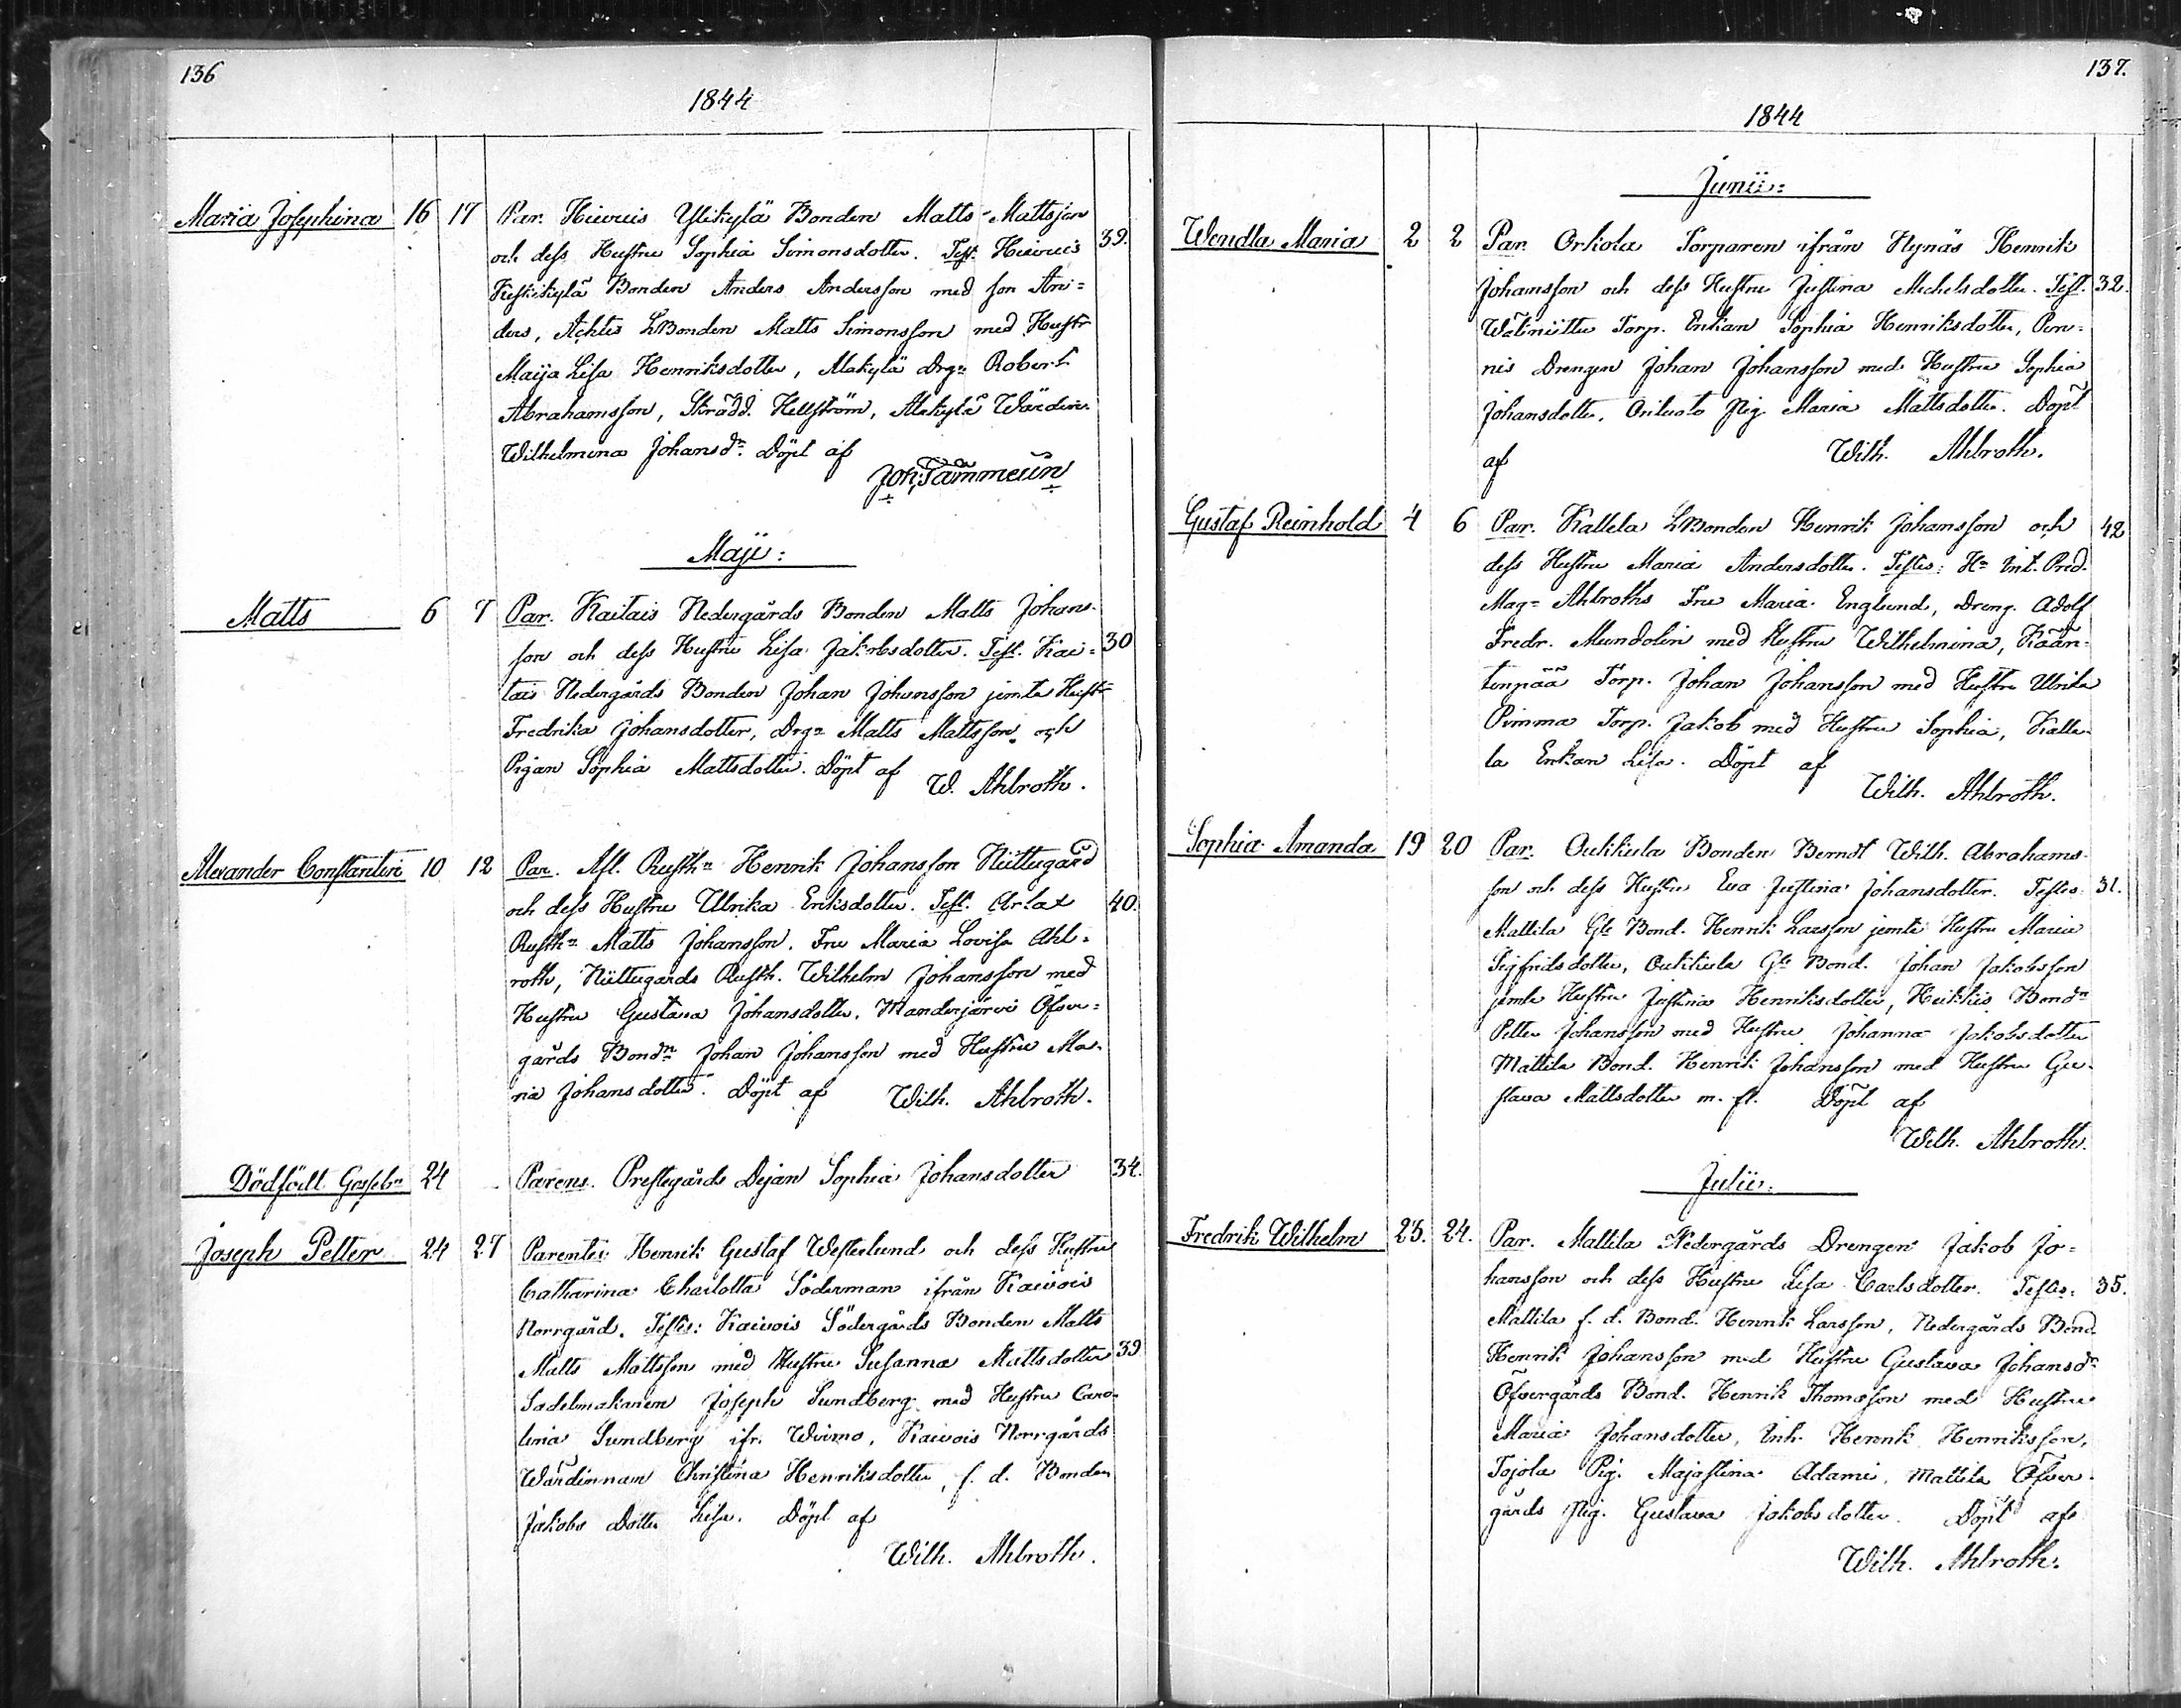 136
1844
Maria Josephina 16 17 Par. Ylikylä Bonden Matts Mattsson
och dess Hustru Sophia Simonsdotter. Test. 39.
Keskikylä Bonden Anders Andersson med son An=
ders, LBonden Matts Simonsson med Hustr
Maija Lisa Henriksdotter, Alakylä Drgn Robert
Abrahamsson, Skrädd. Hellström, Alakylä Wärdin
Wilhelmina Johansdr. Döpt af
Joh. Tammelin
Maji:
Matts 6 7 Par. Kaitais Nedergårds Bonden Matts Johans-
son och dess Hustru Lisa Jakobsdotter. Test. Kai= 30
tais Nedergårds Bonden Johan Johansson jemte Hustr
Fredrika Johansdotter, Drgn Matts Mattsson och
Pigan Sophia Mattsdotter. Döpt af
W. Ahlroth.
Alexander Constantin 10 12 Par. Afl. Rusthn Henrik Johansson Nuttugård
och dess Hustru Ulrika Eriksdotter. Test. Arlax 40.
Rusthn Matts Johansson. Fru Maria Lovisa Ahl=
roth, Nuttugårds Rusth. Wilhelm Johansson med
Hustru Gustava Johansdotter. Manderjärvi Öfver=
gårds Bondn Johan Johansson med Hustru Ma-
ria Johansdotter. Döpt af Wilh. Ahlroth.
Dödfödt Gossebn 24 Parens. Prestegårds Dejan Sophia Johansdotter 34.
Joseph Petter 24 27 Parentes Henrik Gustaf Westerlund och dess Hustru
Catharina Charlotta Söderman ifrån Kaivois
Norrgård. Testes: Kaivois Södergårds Bonden Matts
Matts Mattsson med Hustru Susanna Mattsdotter 39
Sadelmakaren Joseph Sundberg med Hustru Caro-
lina Sundberg ifr. Wiimo, Kaivois Norrgårds
Wärdinnan Christina Henriksdotter, f. d. Bonden
Jakobs Dotter Lisa. Döpt af
Wilh. Ahlroth.
137.
1844
Junii:
Wendla Maria 2 2 Par. Orkola Torparen ifrån Hynäs Henrik
Johansson och dess Hustru Justina Michelsdotter. Test. 32.
Torp. Enkan Sophia Henriksdotter, Pen=
nis Drengen Johan Johansson med Hustru Sophia
Johansdotter. Pig. Maria Mattsdotter. Döpt
af Wilh. Ahlroth.
Gustaf Reinhold 4 6 Par. Kallela LBonden Henrik Johansson och 42
dess Hustru Maria Andersdotter. Testes: Hn Int. Pred.
Magn Ahlroths Fru Maria Englund, Dreng. Adolf
Fredr. Mundolin med Hustru Wilhelmina, Kään-
tenpää Torp. Johan Johansson med Hustru Ulrika
Pimma Torp. Jakob med Hustru Sophia, Kalle-
la Enkan Lisa. Döpt af
Wilh. Ahlroth.
Sophia Amanda 19 20 Par. Oukkula Bonden Berndt Wilh. Abrahams-
son och dess Hustru Eva Justina Johansdotter. Testes 31.
Mattila Gle Bond. Henrik Larsson jemte Hustru Maria
Sigfridsdotter, Oukkula Gle Bond. Johan Jakobsson
jemte Hustru Justina Henriksdotter, Heikkis Bondn
Petter Johansson med Hustru Johanna Jakobsdotter
Mattila Bond. Henrik Johansson med Hustru Gu-
stava Mattsdotter m. fl. Döpt af
Wilh. Ahlroth.
Julii:
Fredrik Wilhelm 23. 24. Par. Mattila Nedergårds Drengen Jakob Jo=
hansson och dess Hustru Lisa Carlsdotter. Testes: 35.
Mattila f. d. Bond. Henrik Larsson, Nedergårds Bond.
Henrik Johansson med Hustru Gustava Johansdr
Öfvergårds Bond. Henrik Thomasson med Hustru
Maria Johansdotter, Inh. Henrik Henriksson,
Tojola Pig. Majastina Adami, Mattila Öfver-
gårds Pig. Gustava Jakobsdotter. Döpt af
Wilh. Ahlroth.